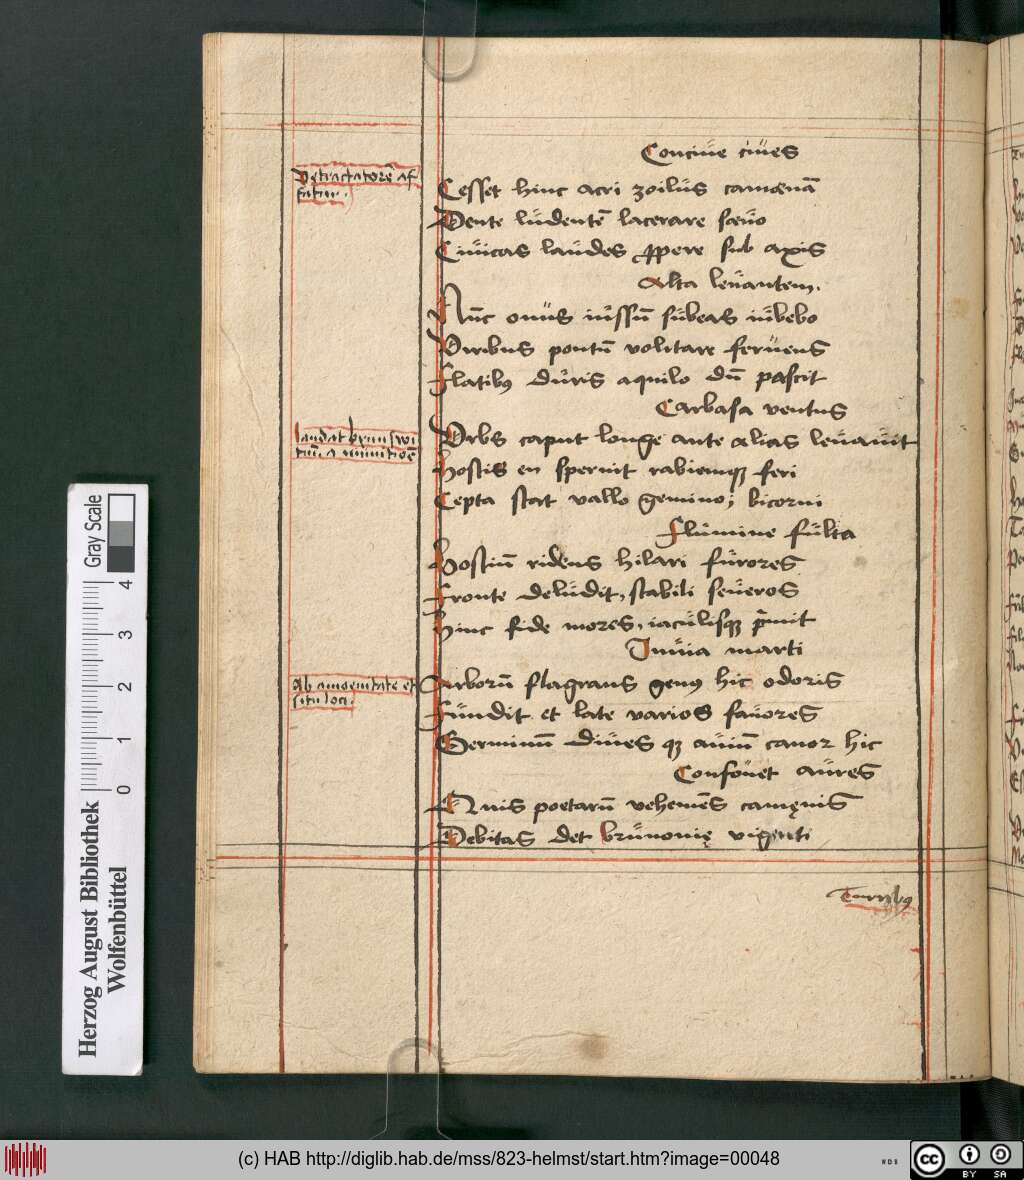 Conciue ciues
Detractatorē af
fatur.
Cesset hinc acri zoilus camœnā
Dente ludentē lacerare sœuo
Ciuicas laudes ꝓpere sub axis
Alta leuantem.
Nūc onus iussū subeas iubebo
Viribus pontū volitare feruens
Flatibꝰ duris aquilo dū pascit
Carbasa ventus
laudat brunswi
Vrbs caput longe ante alias leuauit
Hostis en spernit rabiemqꝫ feri
Cepta stat vallo gemino; bicorni
Flumine fulta
Hostiū ridens hilari furores
Fronte deludit, stabili seueros
Hinc fide mores, iaculisqꝫ p̄mit
Inuia marti
Ab amoenitate et
situ loci.
Arborū flagrans genꝰ hic odoris
Fundit et late varios fauores
Germinū diues qꝫ auiū canor hic
Confouet aures
Quis poetarū vehemēs camęnis
Debitas det brunonię vigenti
Turribꝰ
Herzog August Bibliothek
Wolfenbüttel
Gray Scale
0 1 2 3 4
(c) HAB http://diglib.hab.de/mss/823-helmst/start.htm?image=00048
cc BY SA